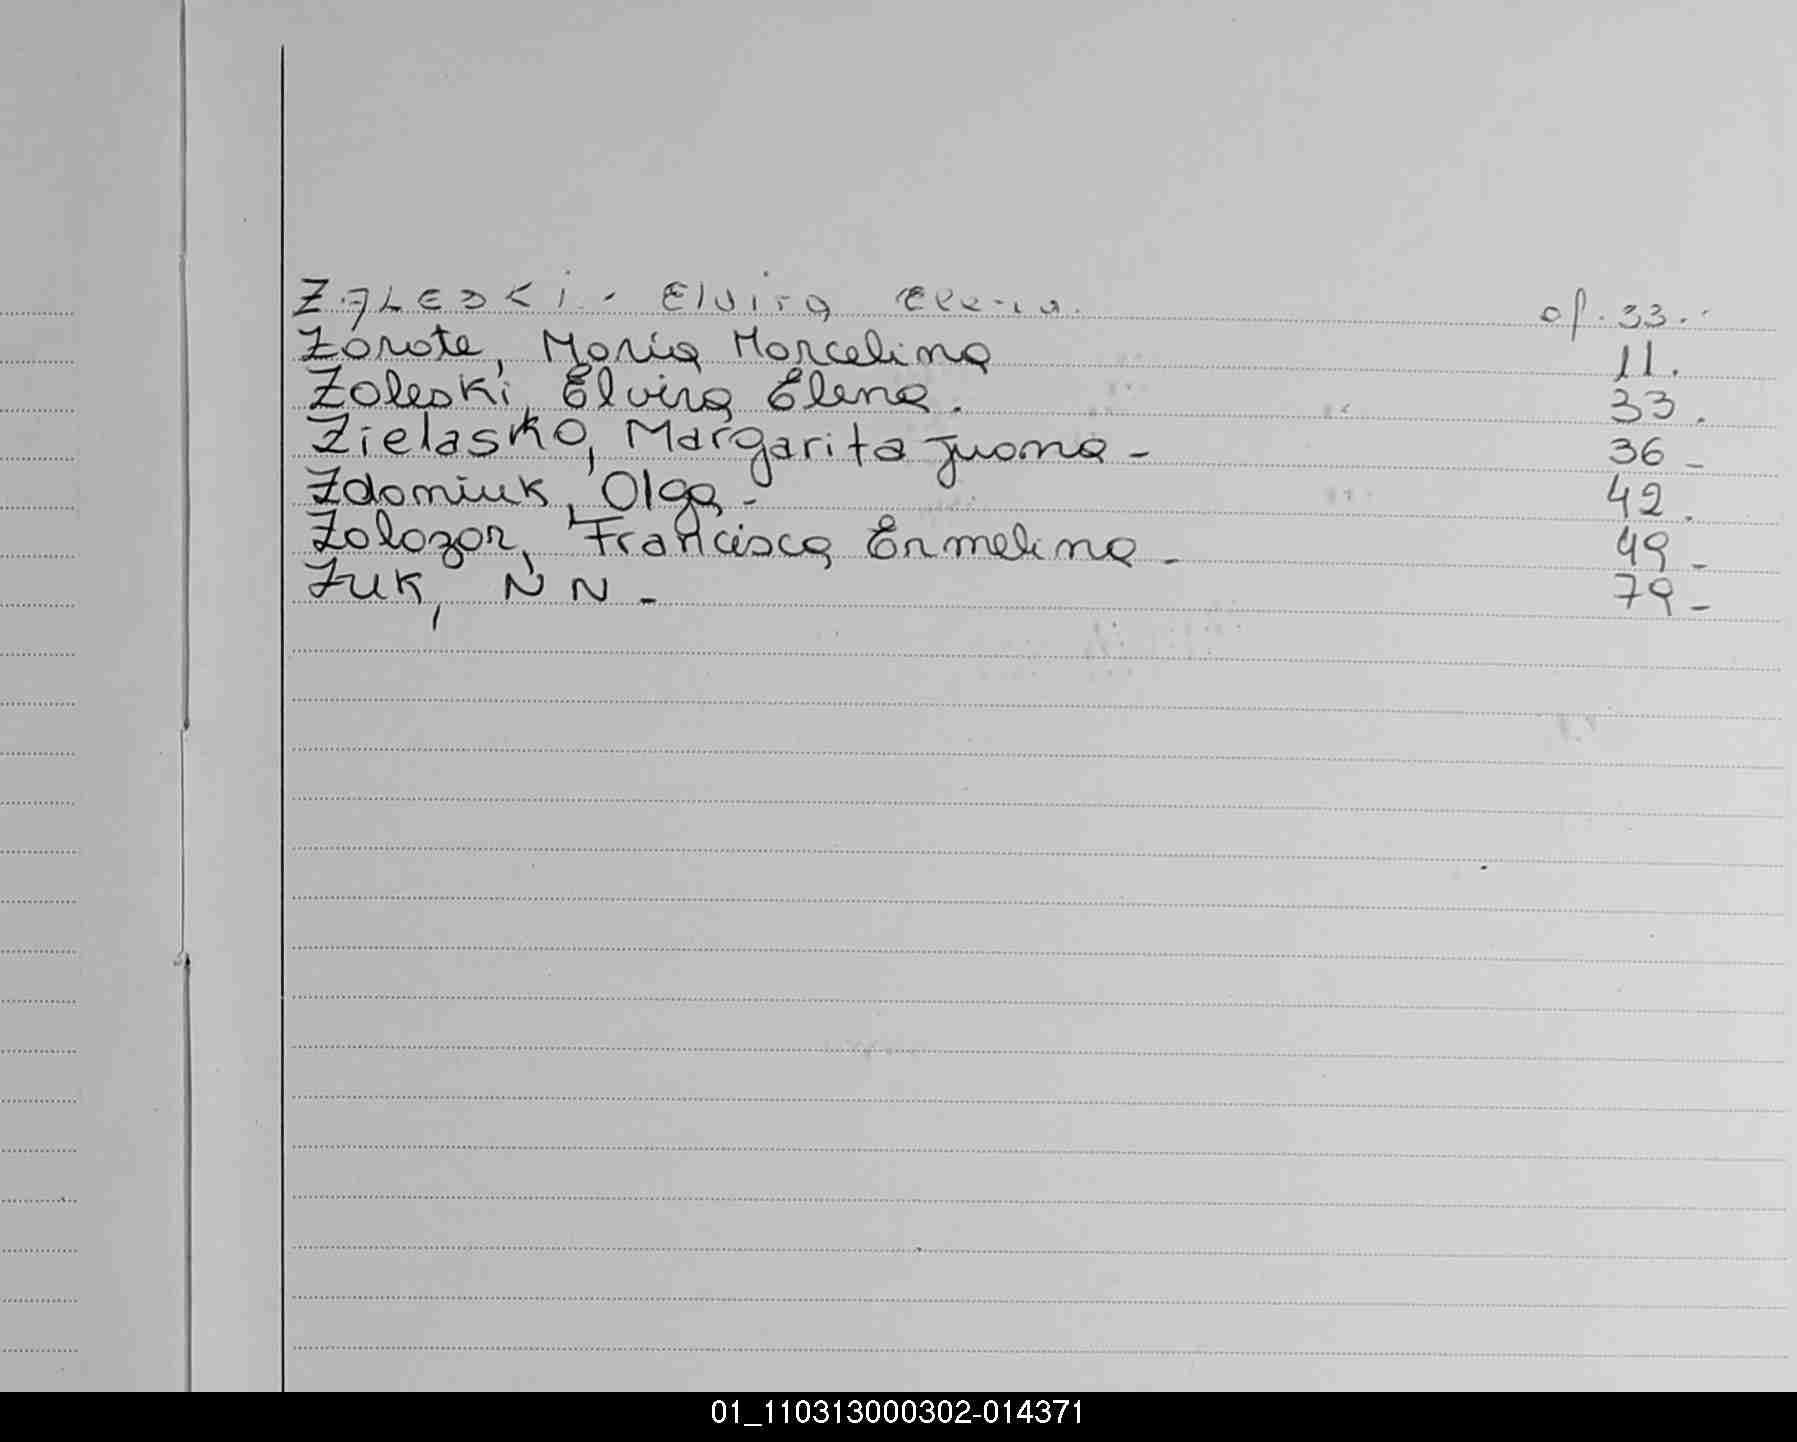 Zaleski.- Elvira Elena. af. 33.-
Zarate, Maria Marcelina 11.
Zaleski, Elvira Elena. 33.
Zielasko, Margarita Juana - 36 -
Zdaniuk, Olga - 42.
Zalazar, Francisca Ermelina - 49 -
Zuk, N N - 79 -
01_110313000302-014371